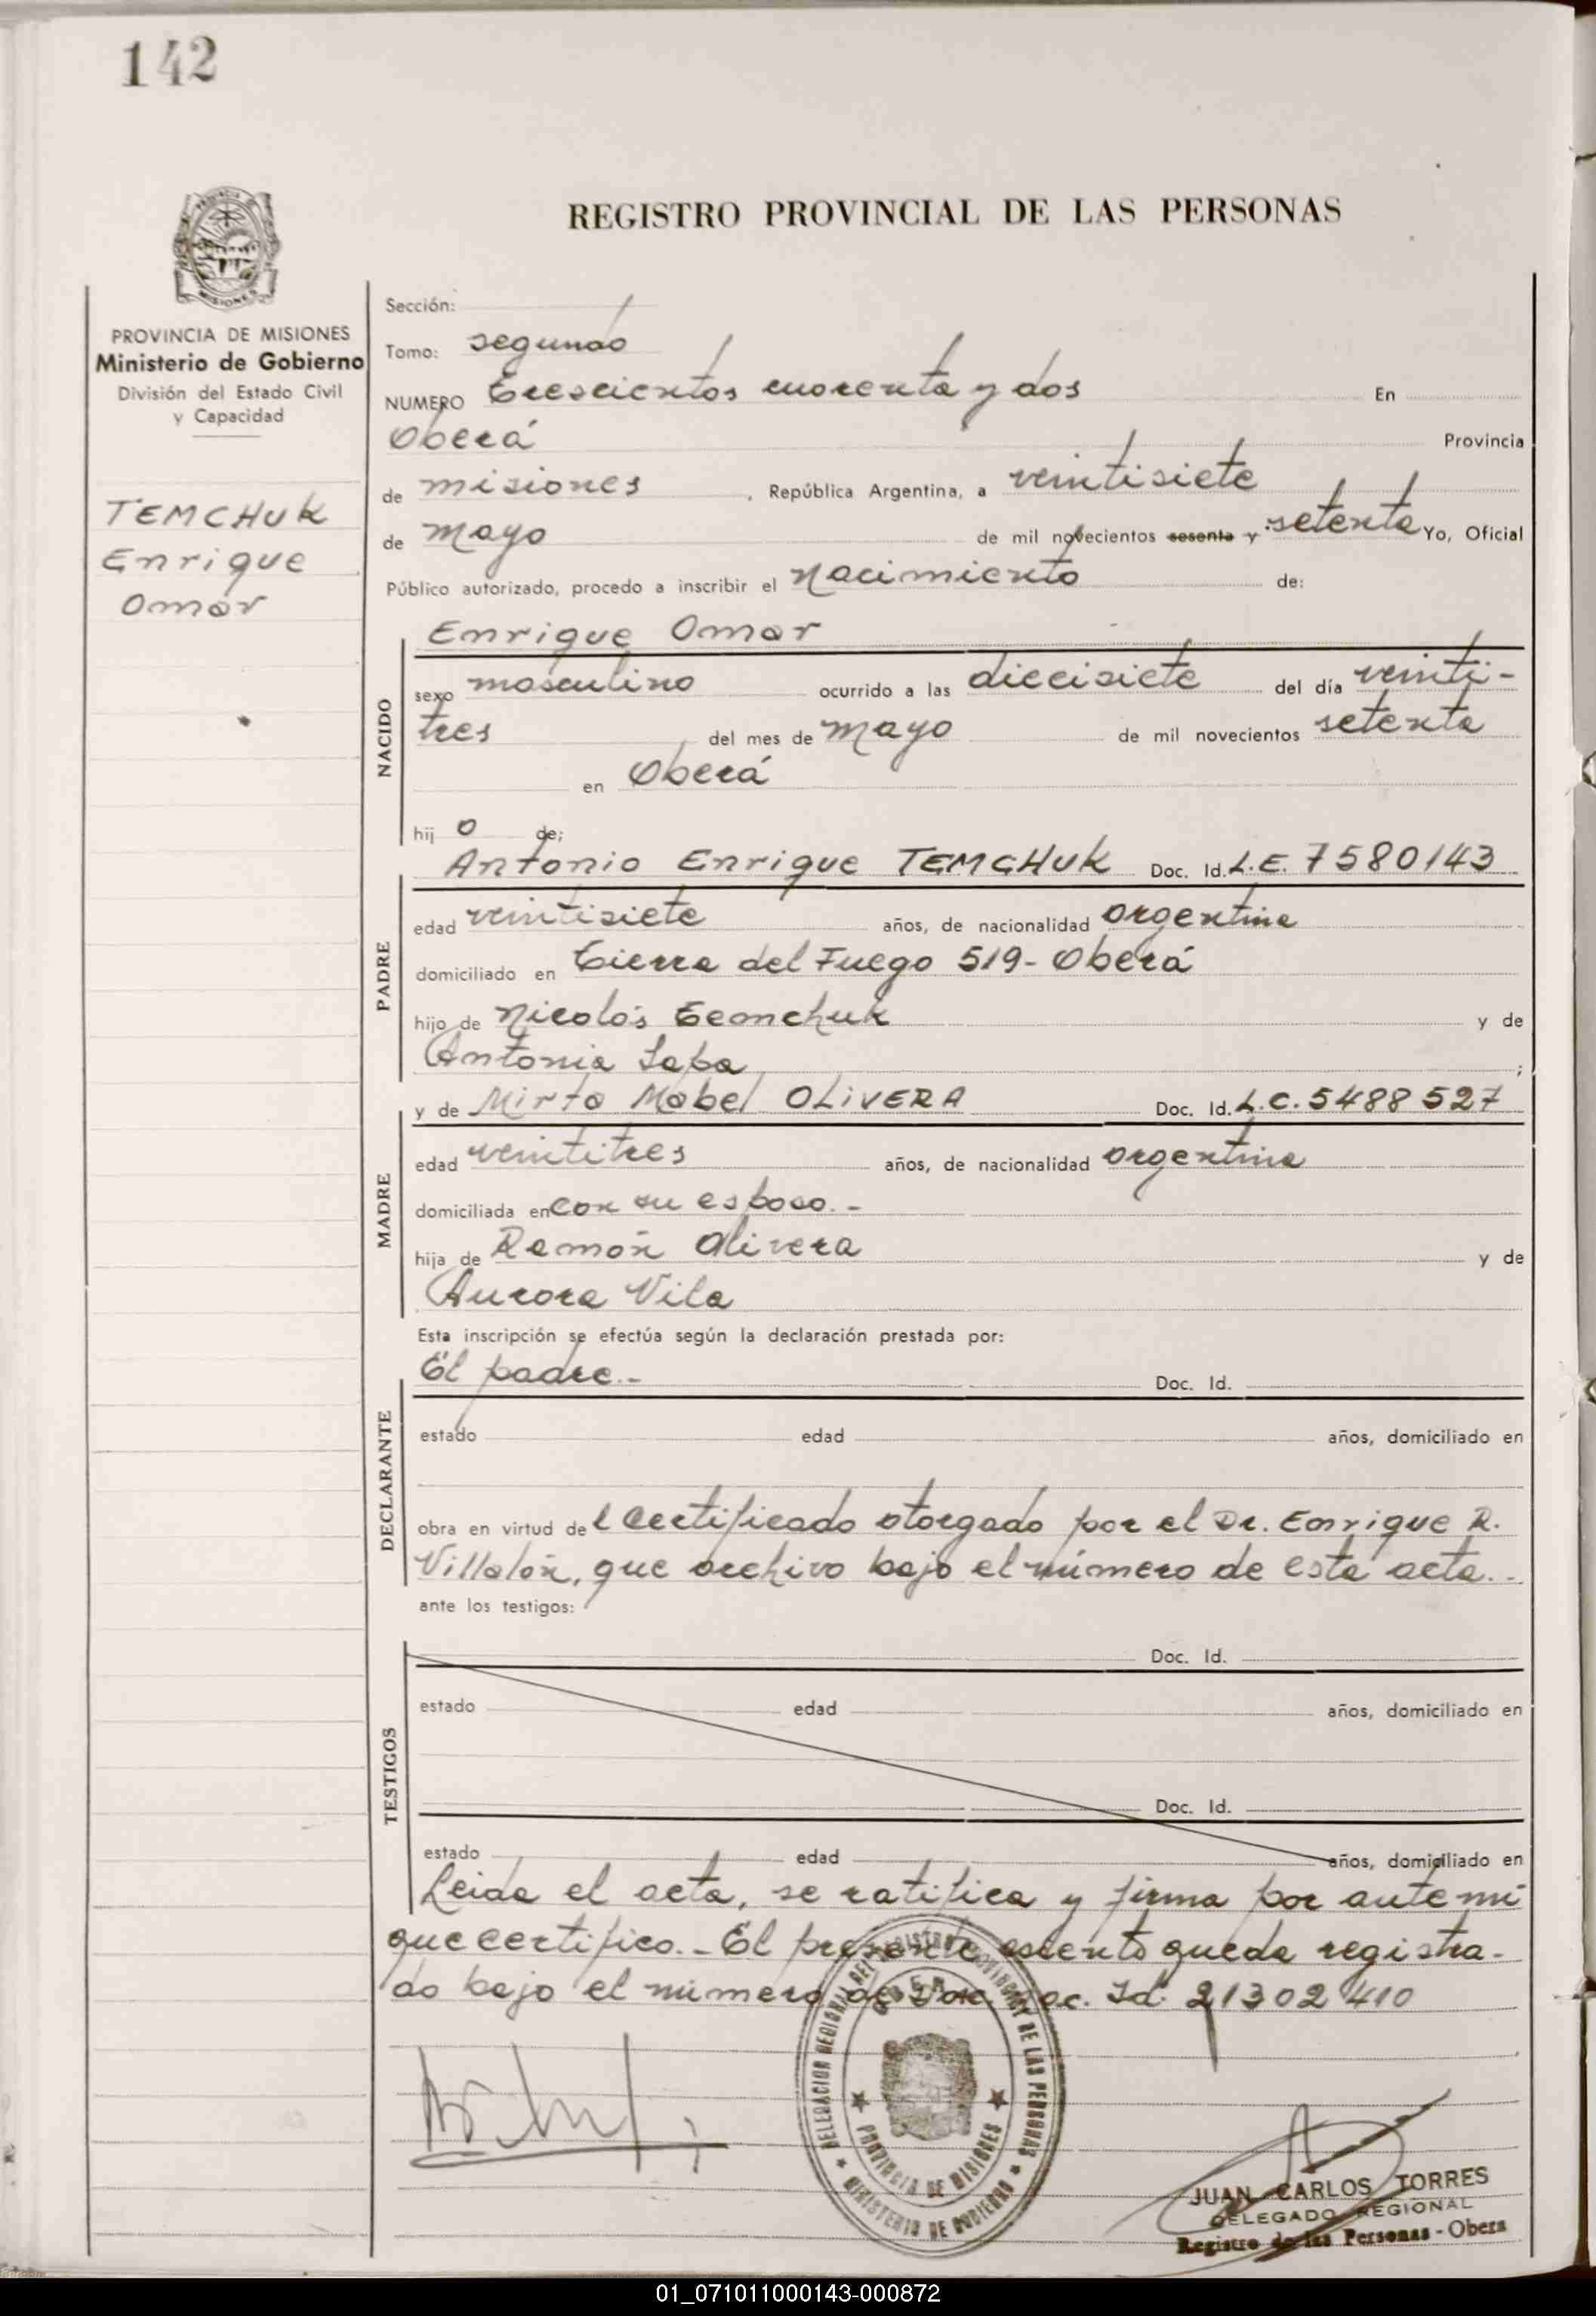 142
REGISTRO PROVINCIAL DE LAS PERSONAS
PROVINCIA DE MISIONES
Ministerio de Gobierno
División del Estado Civil
y Capacidad
TEMCHUK
Enrique
Omar
Sección:
Tomo: segundo
NUMERO Trescientos cuarenta y dos En
Oberá Provincia
de misiones, República Argentina, a veintisiete
de mayo de mil novecientos sesenta y setenta Yo, Oficial
Público autorizado, procedo a inscribir el nacimiento de:
Enrique Omar
NACIDO
sexo masculino ocurrido a las diecisiete del día veinti-
tres del mes de mayo de mil novecientos setenta
en Oberá
hij o de;
Antonio Enrique TEMCHUK Doc. Id. L.E. 7580143
PADRE
edad veintisiete años, de nacionalidad argentina
domiciliado en Tierra del Fuego 519- Oberá
hijo de Nicolás y de
Antonia ;
y de Mirta Mabel OLIVERA Doc. Id. L.C. 5488527
MADRE
edad veintitres años, de nacionalidad argentina
domiciliada en con su esposo.-
hija de Ramón Olivera y de
Aurora Vila
Esta inscripción se efectúa según la declaración prestada por:
El padre.- Doc. Id.
DECLARANTE
estado edad años, domiciliado en
obra en virtud de l certificado otorgado por el Dr. Enrique R.
Villalón, que archivo bajo el número de esta acta.-
ante los testigos:
Doc. Id.
TESTIGOS
estado edad años, domiciliado en
Doc. Id.
estado edad años, domiciliado en
Leida el acta, se ratifica y firma por ante mi
que certifico.- El presente asiento queda registra-
do bajo el número de Doc. Id. 21302410
DELEGACION REGIONAL DEL REGISTRO PROVINCIAL DE LAS PERSONAS
PROVINCIA DE MISIONES
MINISTERIO DE GOBIERNO
JUAN CARLOS TORRES
DELEGADO REGIONAL
Registro de las Personas - Obera
01_071011000143-000872